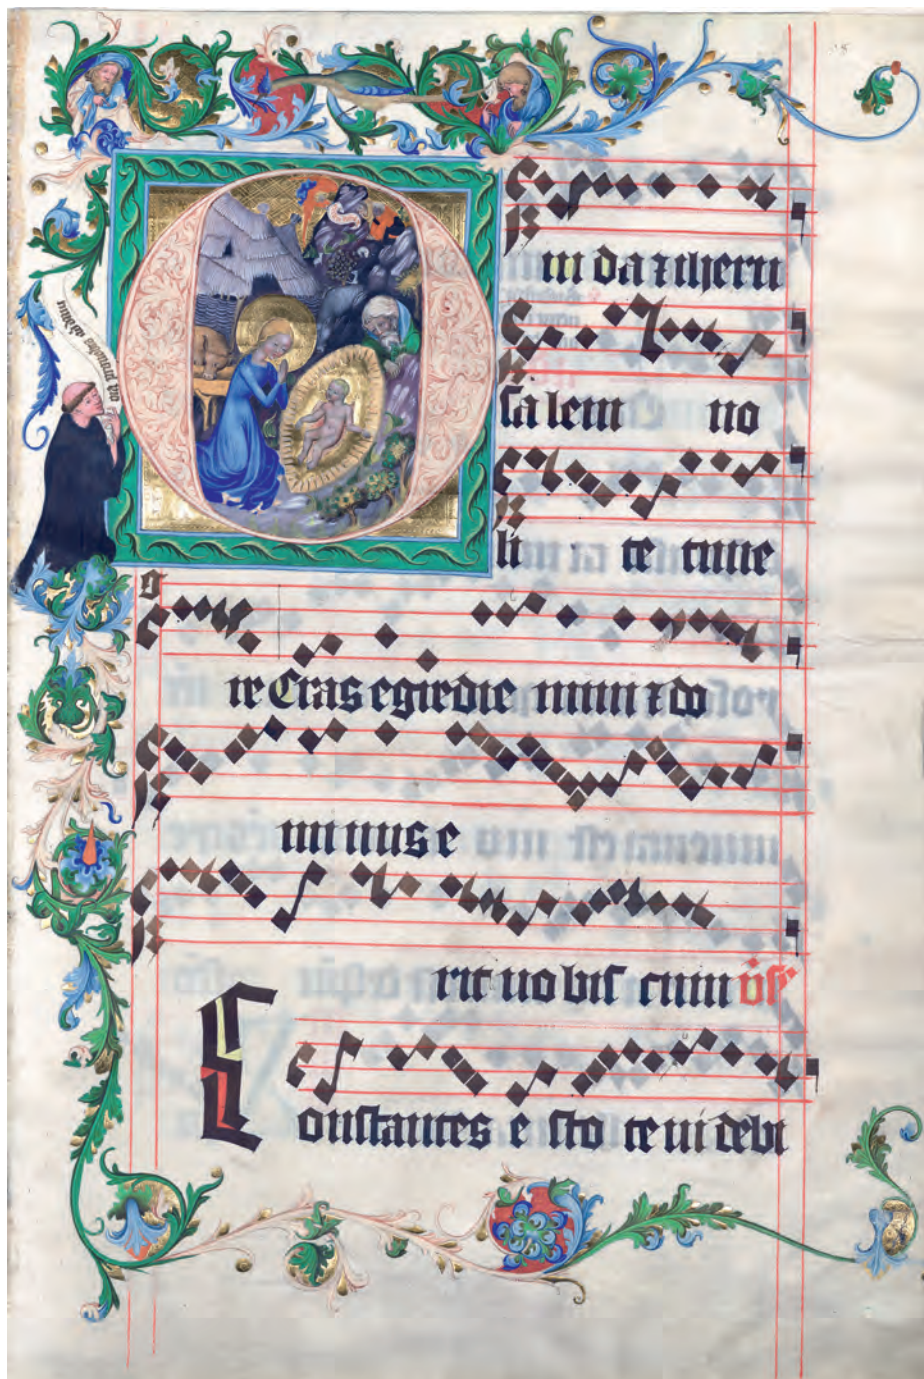 O iu da ⁊ iheru
ſa lem no
li te time
re Cras egredie mini ⁊ do
mi nus e
rit uo biſ cum vſ
Conſtantes e ſto te ui debi